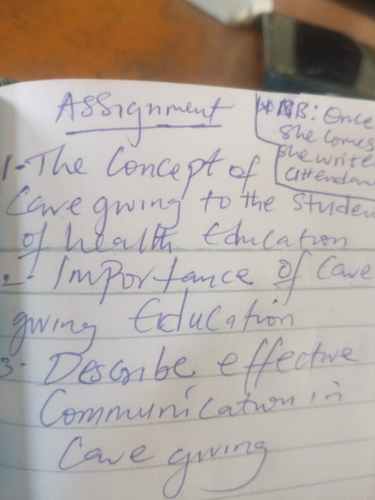 Assignment
NB: Once
she comes
she write
attendan
1- The Concept of
Care giving to the Studen
of health Education
2- Importance of Care
giving Education
3- Describe effective
Communication in
Care giving